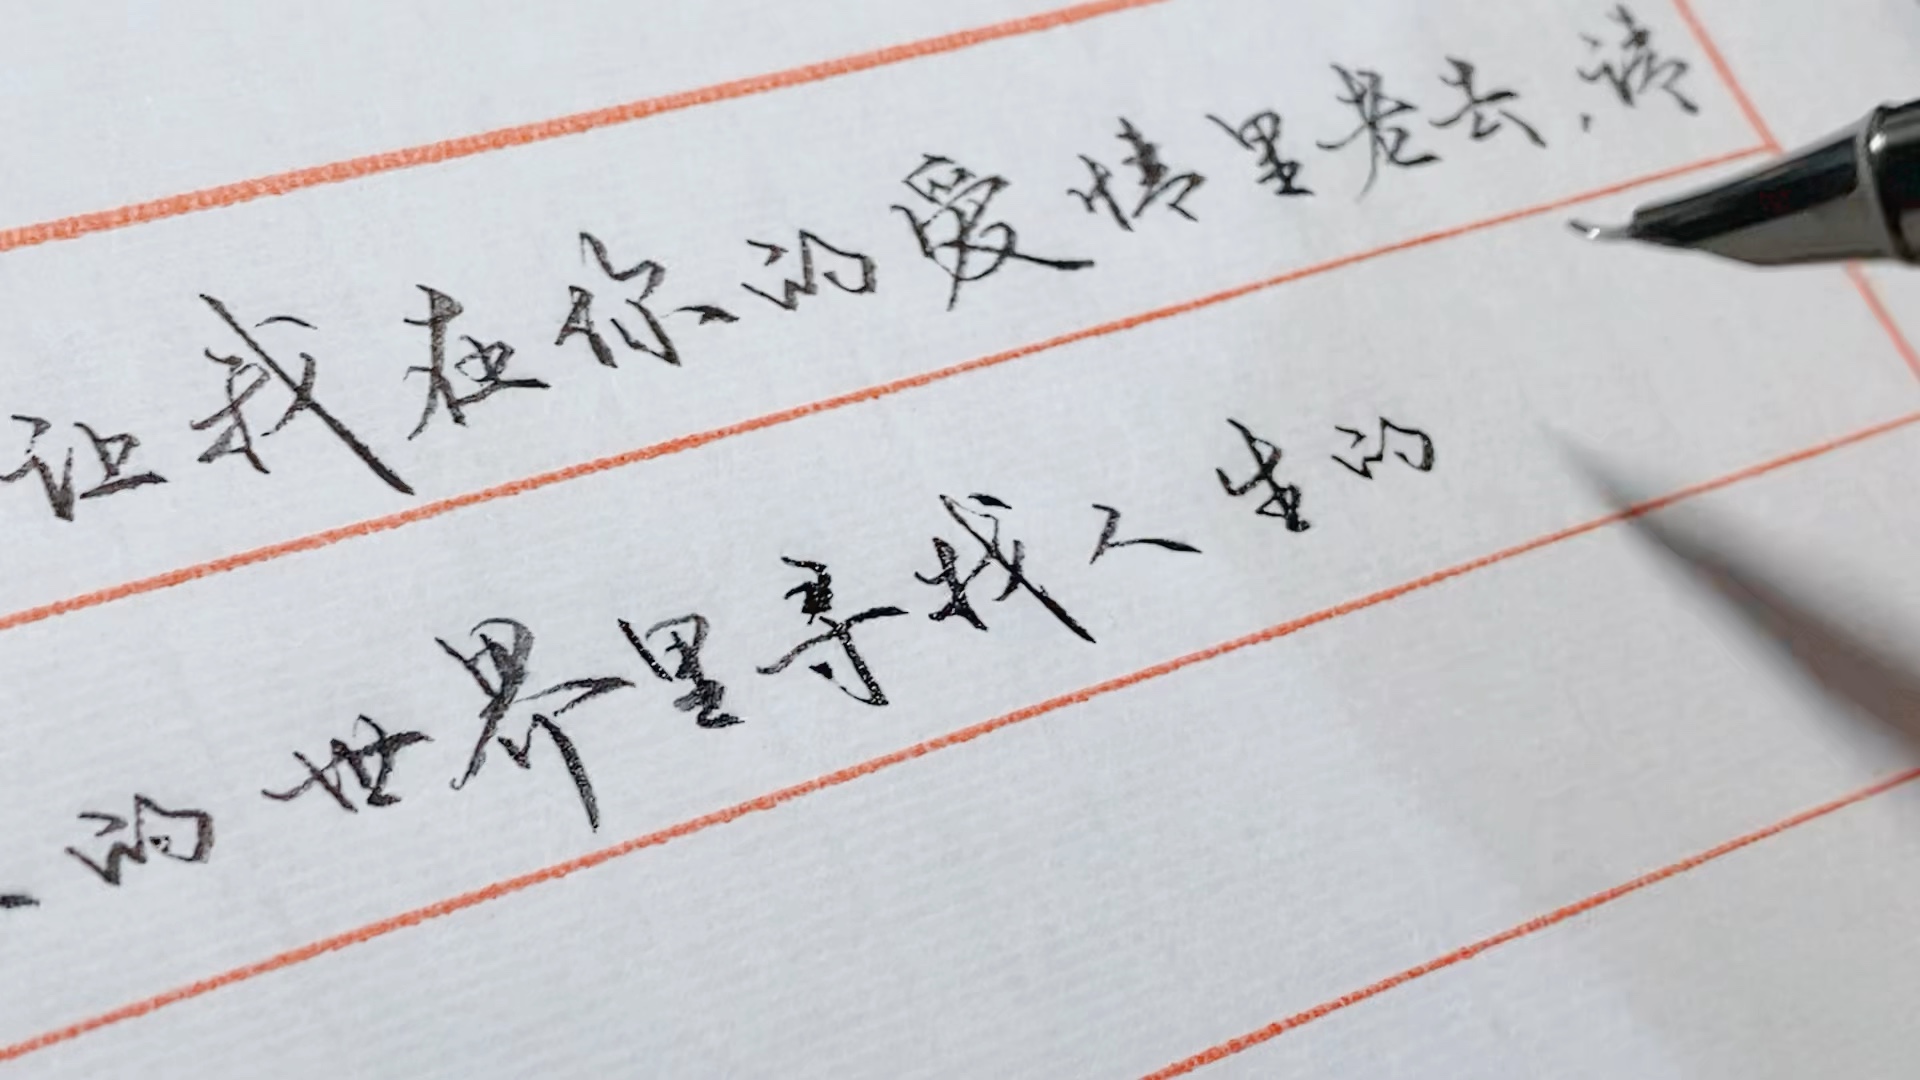 让我在你的爱情里老去,请
的世界里寻找人生的